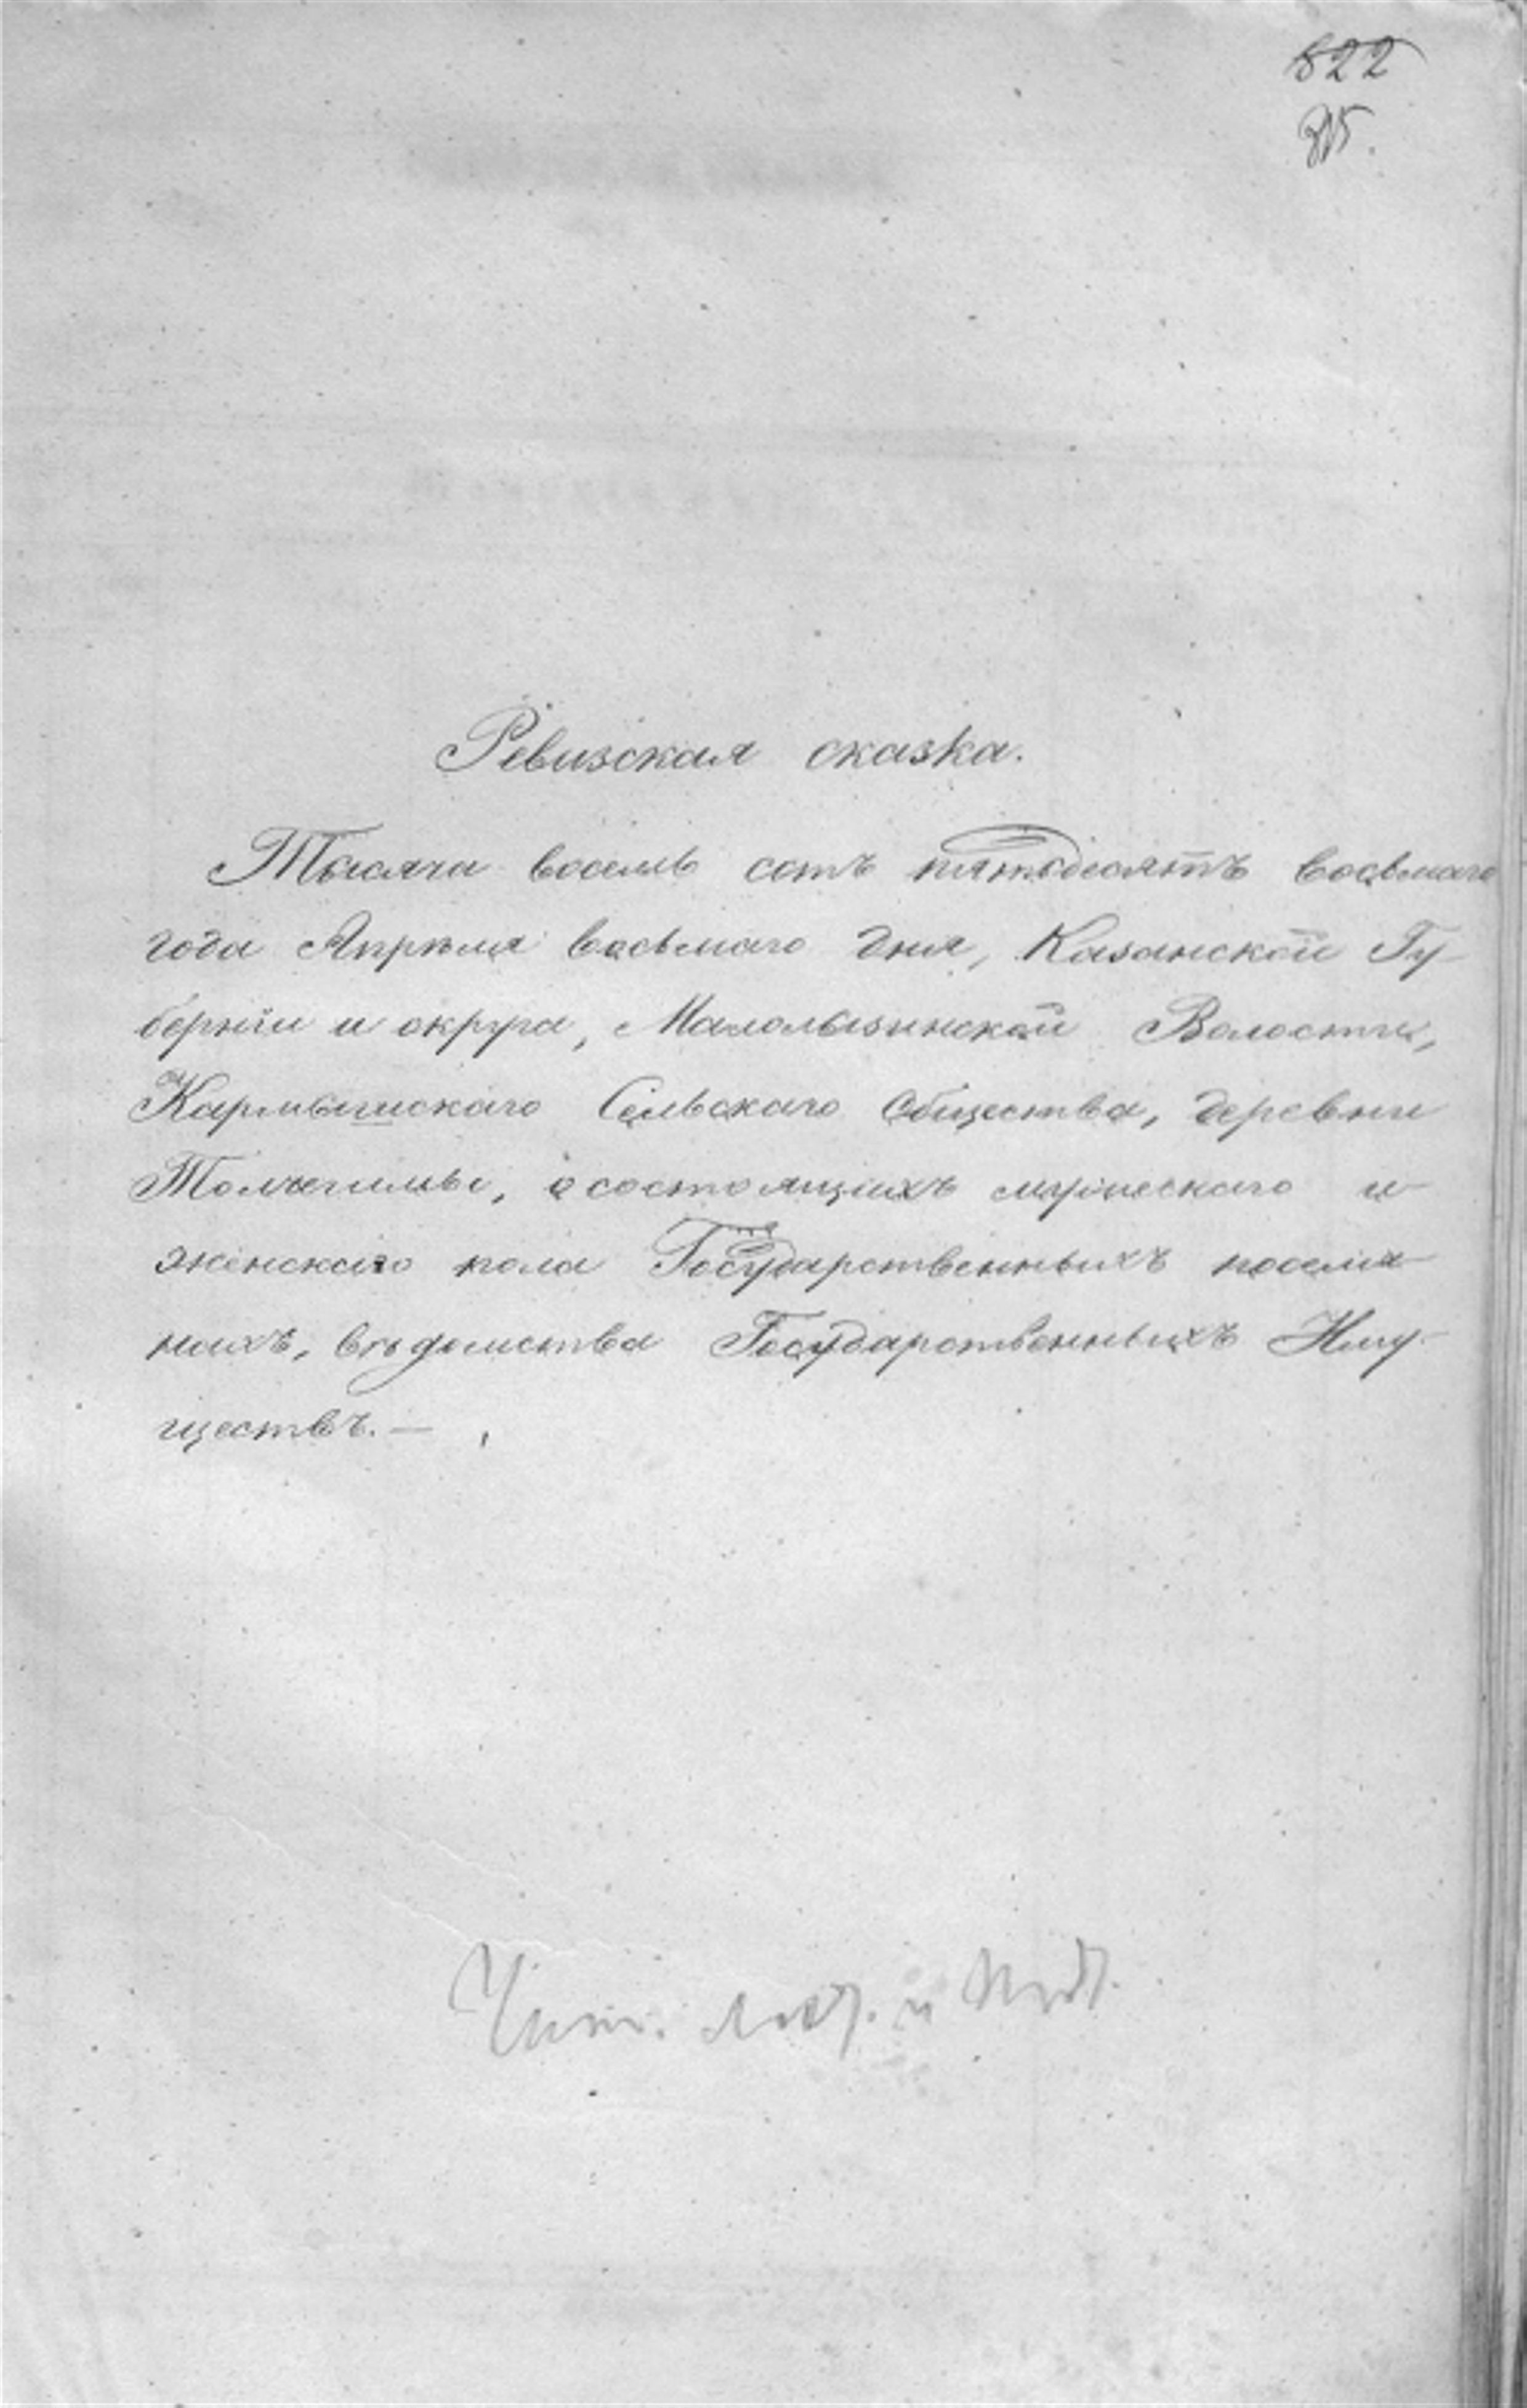 822
Ревизская сказка.
Тысяча восемь сотъ пятьдесятъ восьмаго
года Апрѣля восьмаго дня, Казанской Гу-
берніи и округа, Малолызинской Волости,
Сельскаго общества, деревни
о состоящихъ мужескаго и
женскаго пола Государственныхъ поселя-
нахъ, вѣдомства Государственныхъ Иму-
ществъ.—